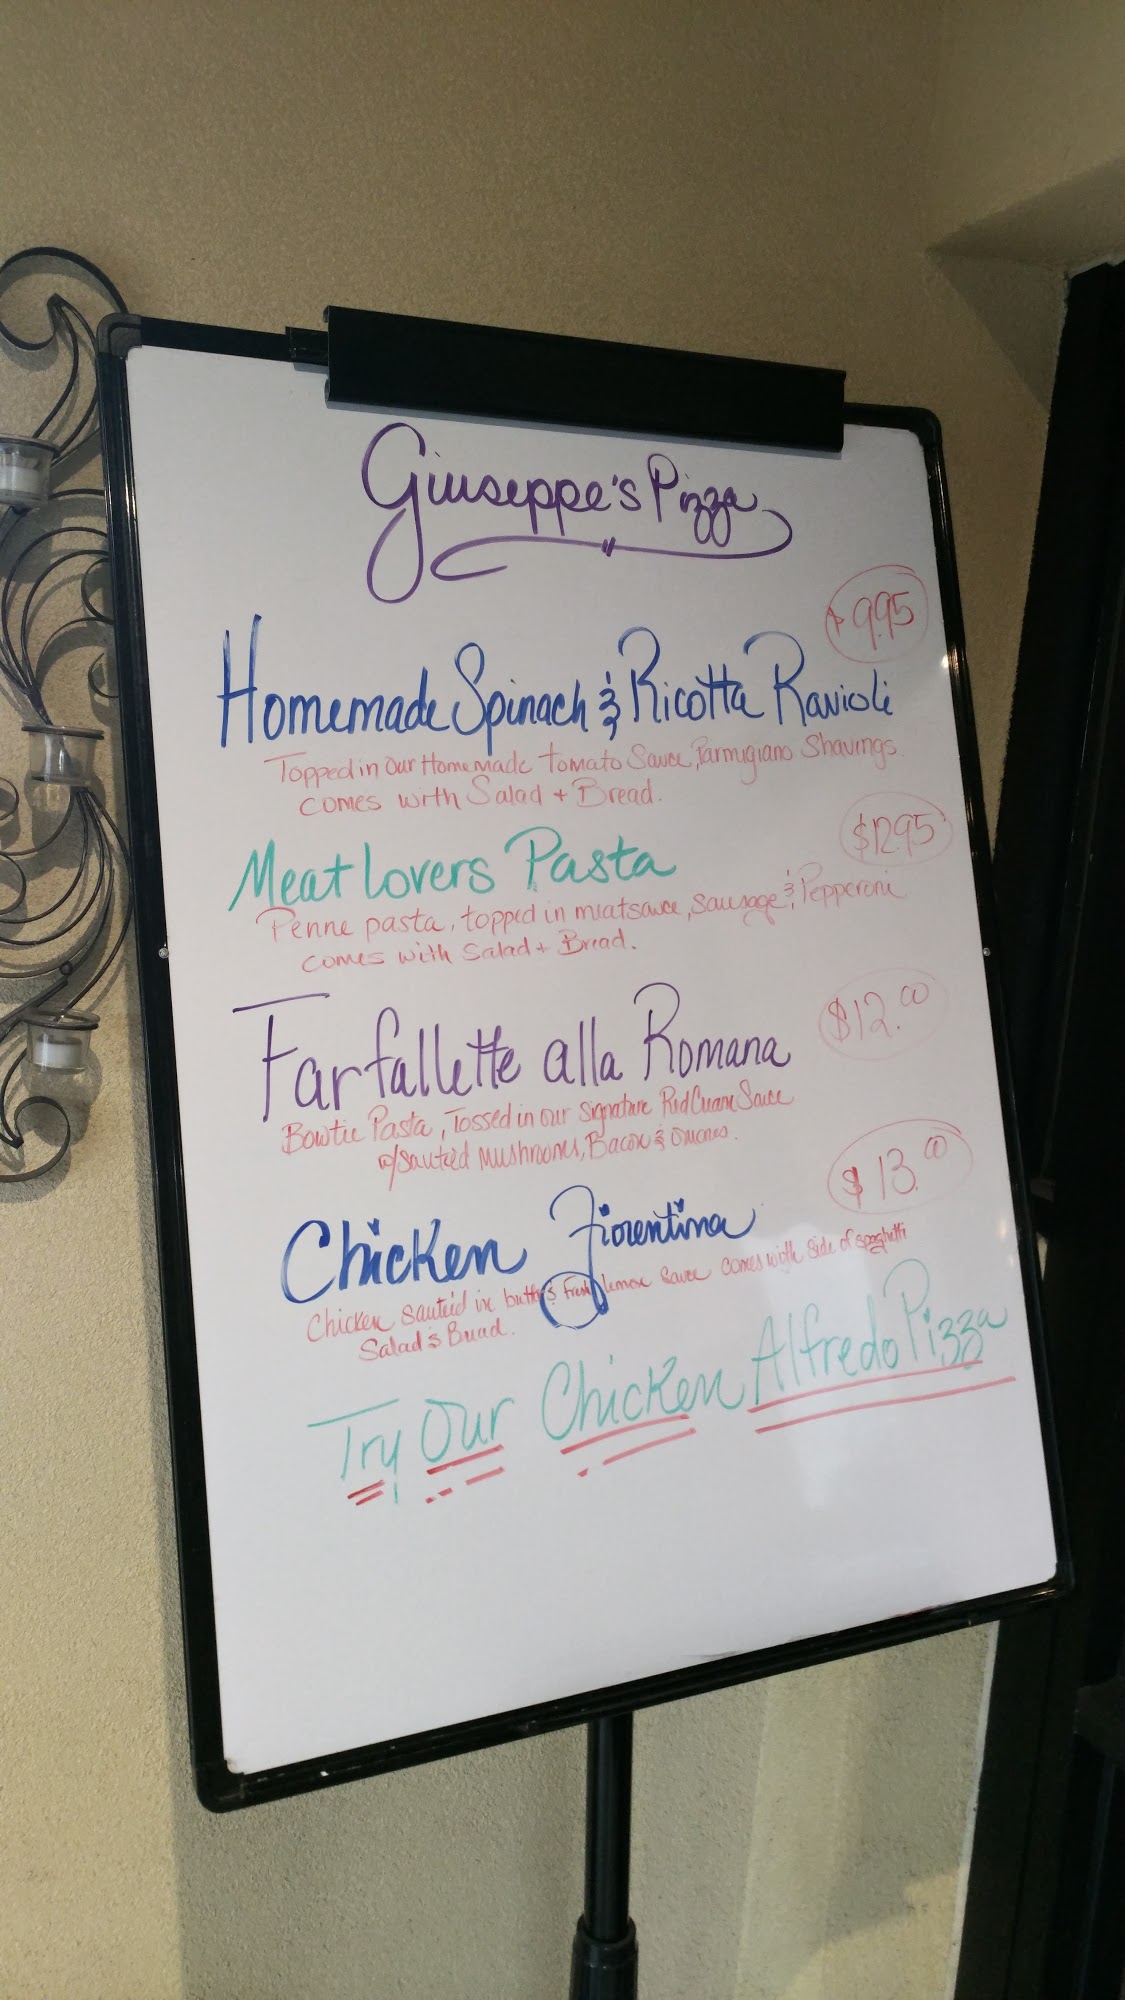 Giuseppe's Pizza
$9.95
Homemade Spinach & Ricotta Ravioli
Topped in our Homemade tomato Sauce, Parmigiano Shavings
comes with Salad + Bread.
$12.95
Meat Lovers Pasta
Penne pasta, topped in meatsauce, sausage & Pepperoni
comes with Salad + Bread.
$12.00
Farfallette alla Romana
Bowtie Pasta, Tossed in our signature Red Cream Sauce
w/ sautéed mushrooms, Bacon & onions.
$13.00
Chicken Fiorentina
Chicken sautéed in butter & fresh lemon sauce comes with side of spaghetti
Salad & Bread.
Try Our Chicken Alfredo Pizza